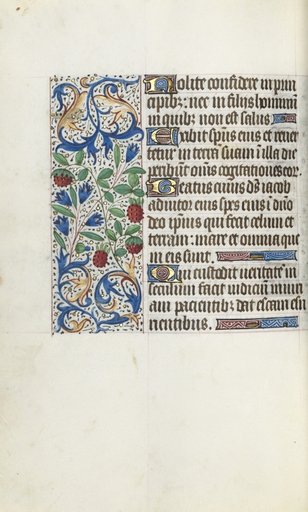 Nolite confidere in prin
cipibꝫ: nec in filijs hominū
in quibꝫ non est salus
Exibit spūs eius et reuer
tetur in terrā suam in illa die
peribūt om̄s cogitationes eor.
Beatus cuius dꝰ iacob
adiutor eius spes eius ī dn̄o
deo ip̄ius qui fecit celum et
terram: mare et omnia que
in eis sunt.
Qui custodit ueritatē in
seculum facit iudiciū iniuri
am pacientibꝫ dat escam esu
rientibus.